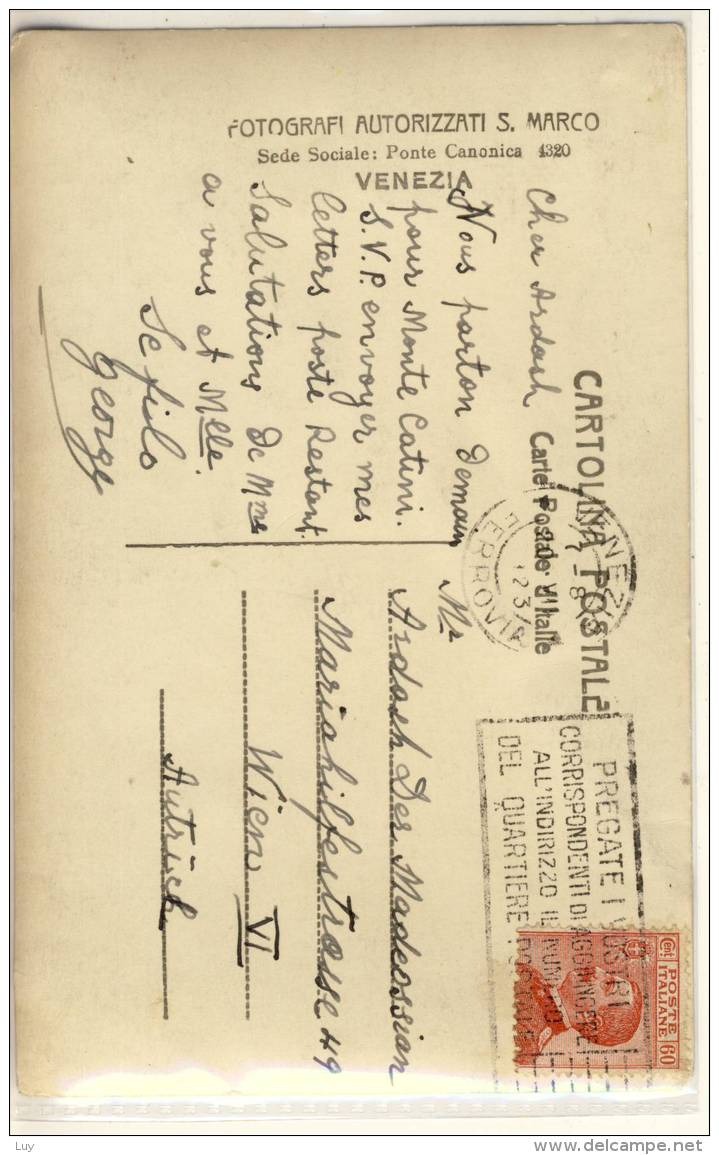 FOTOGRAFI AUTORIZZATI S. MARCO
Sede Sociale: Ponte Canonica 4320
VENEZIA
CARTOLINA POSTALE
Carte Postale d'Italie
Cher Ardash
Nous parton Demain
pour Monte Catini.
S.V.P. envoyer mes
letters poste Restant.
Salutations De Mme
a vous et Mlle.
George
Mr
Ardash Der Madeossian
Mariahilfestrasse 49
Wien VI
Autrich
FERROVIA
PREGATE I VOSTRI
CORRISPONDENTI DI AGGIUNGERE
ALL'INDIRIZZO IL NUMERO
DEL QUARTIERE POSTALE
POSTE
ITALIANE
Cent 60
Luy
www.delcampe.net